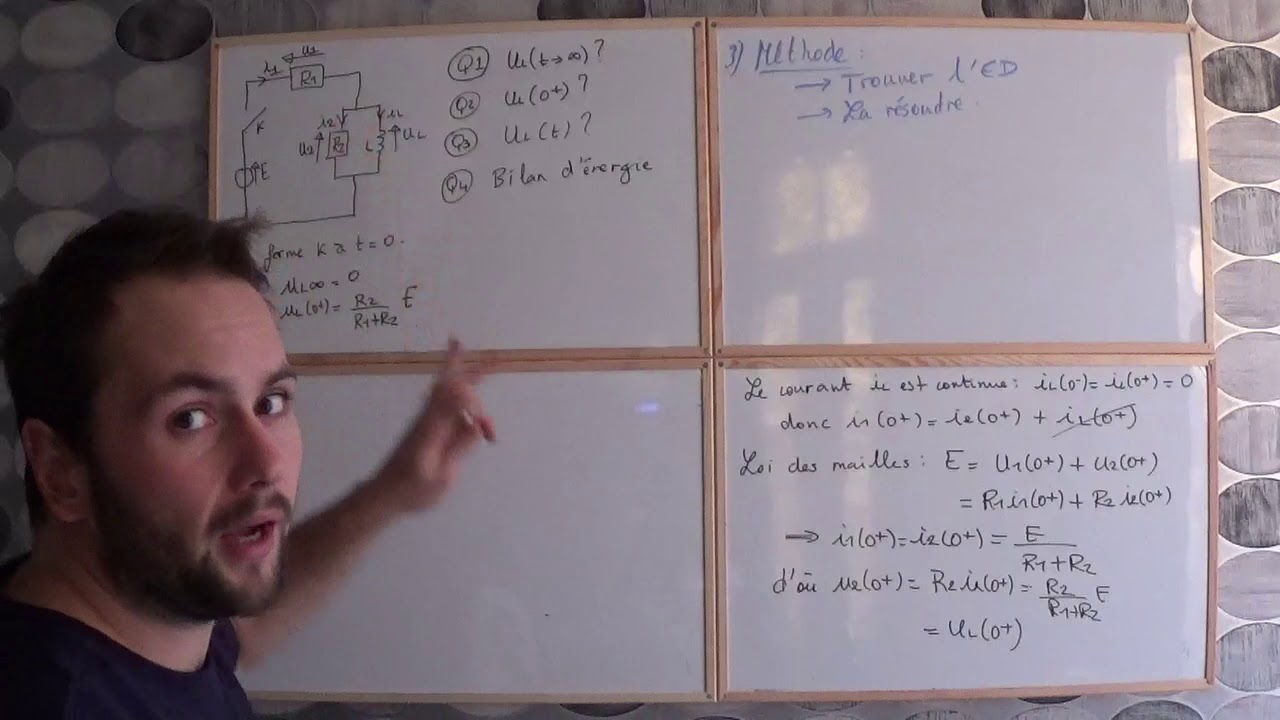 u1
i1
R1
K
i2
iL
u2
R2
L
uL
E
Q1 uL(t→∞)?
Q2 uL(0+)?
Q3 uL(t)?
Q4 Bilan d'énergie
ferme K à t=0.
uL∞ = 0
uL(0+) = R2/(R1+R2) E
3) Méthode :
→ Trouver l'ED
→ La résoudre.
Le courant iL est continue : iL(0-)=iL(0+)=0
donc i1(0+) = i2(0+) + iL(0+)
Loi des mailles : E = U1(0+) + U2(0+)
= R1i1(0+) + R2i2(0+)
→ i1(0+)=i2(0+) = E/(R1+R2)
d'où u2(0+) = R2i2(0+) = R2/(R1+R2) E
= uL(0+)